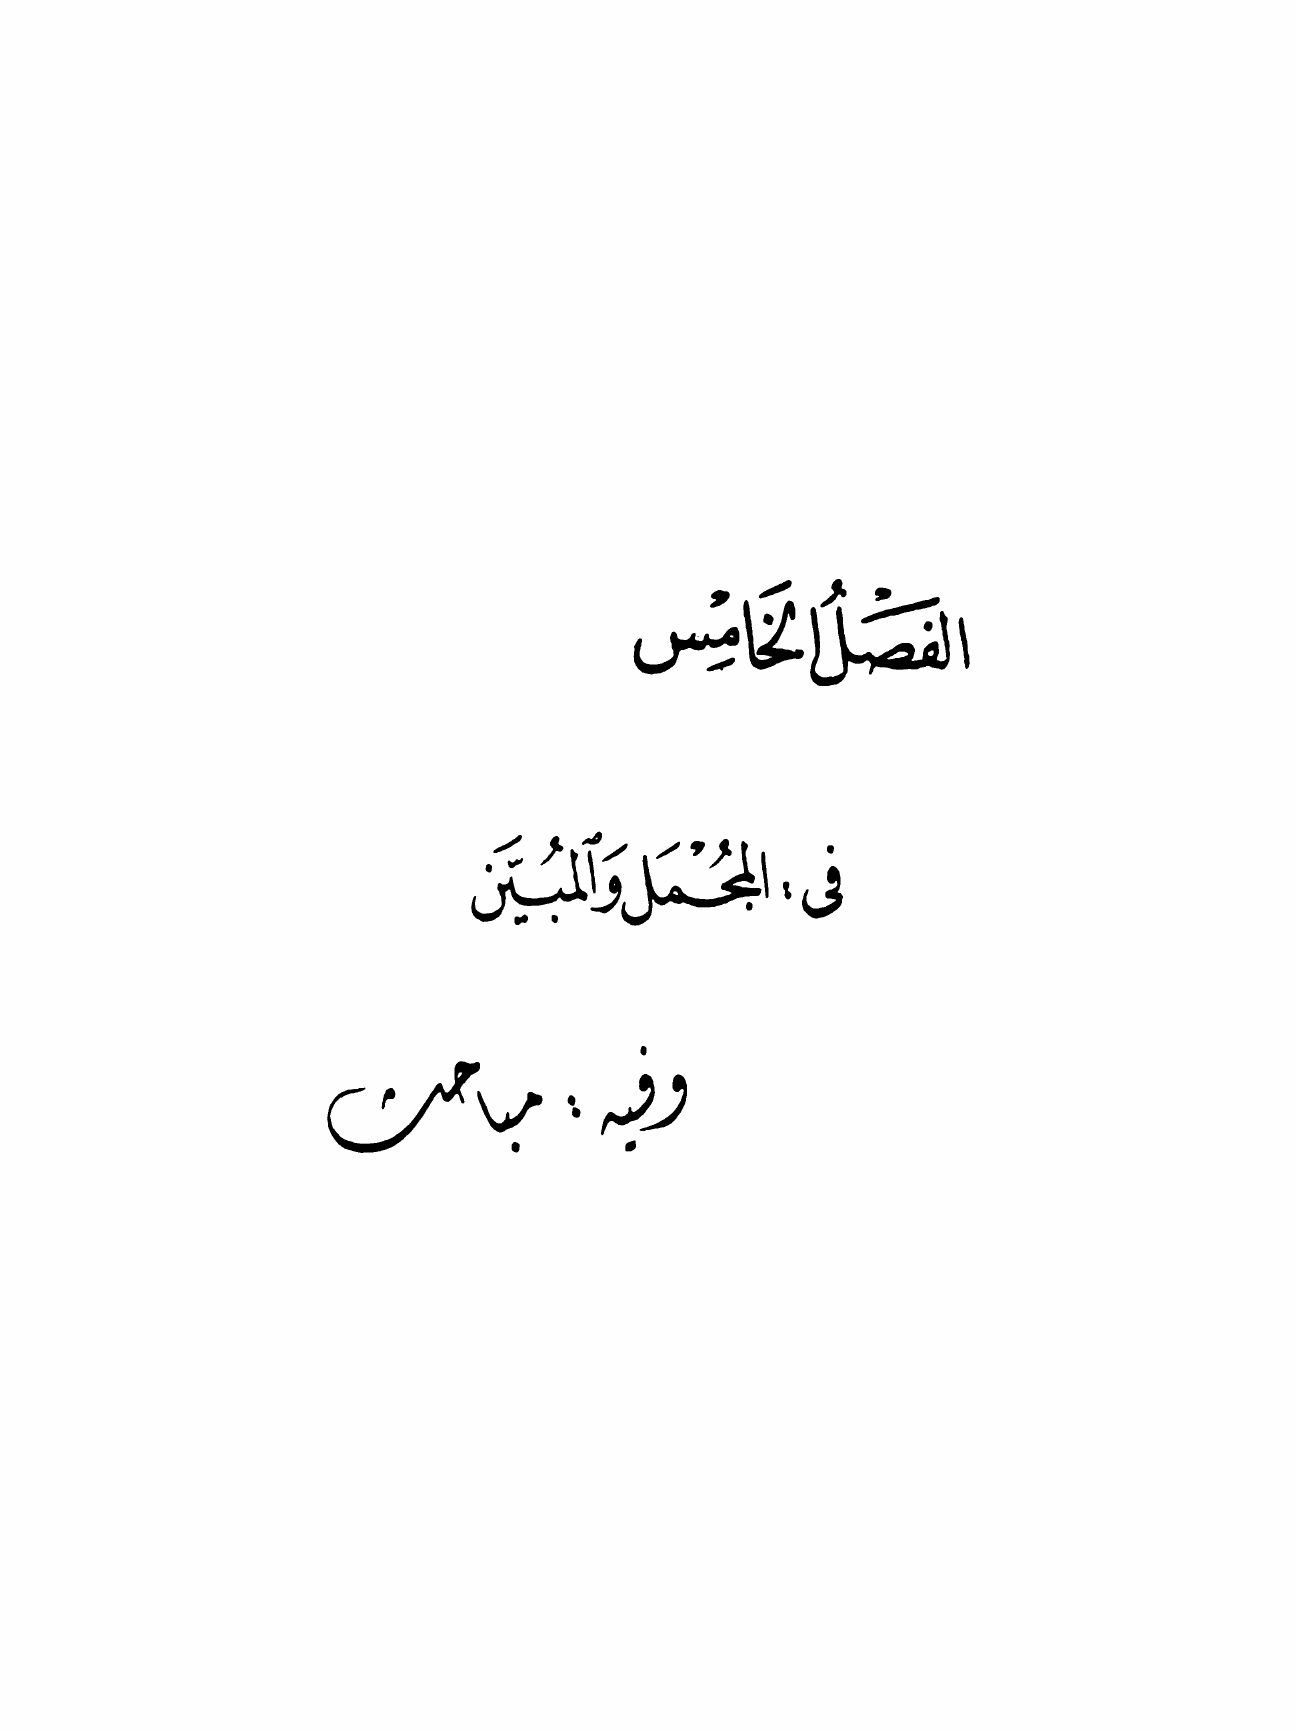 الفَصْلُ الخَامِسْ
فى : المجُمْمَل وَٱلمبُيَّنَ
وفيه : مباحث